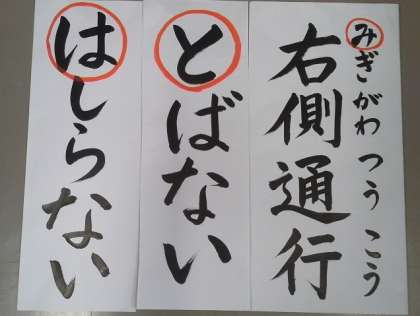 みぎがわつうこう
右側通行
とばない
はしらない